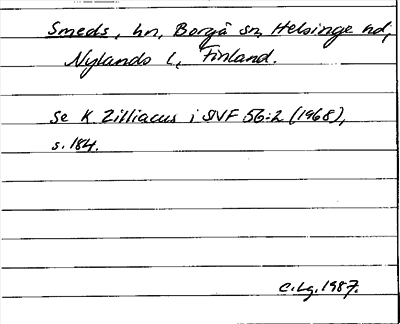 Smeds, hn, Borgå sn, Helsinge hd,
Nylands l, Finland.
Se K Zilliacus i OVF 56:2 (1968),
s. 184.
C.Lg. 1987.